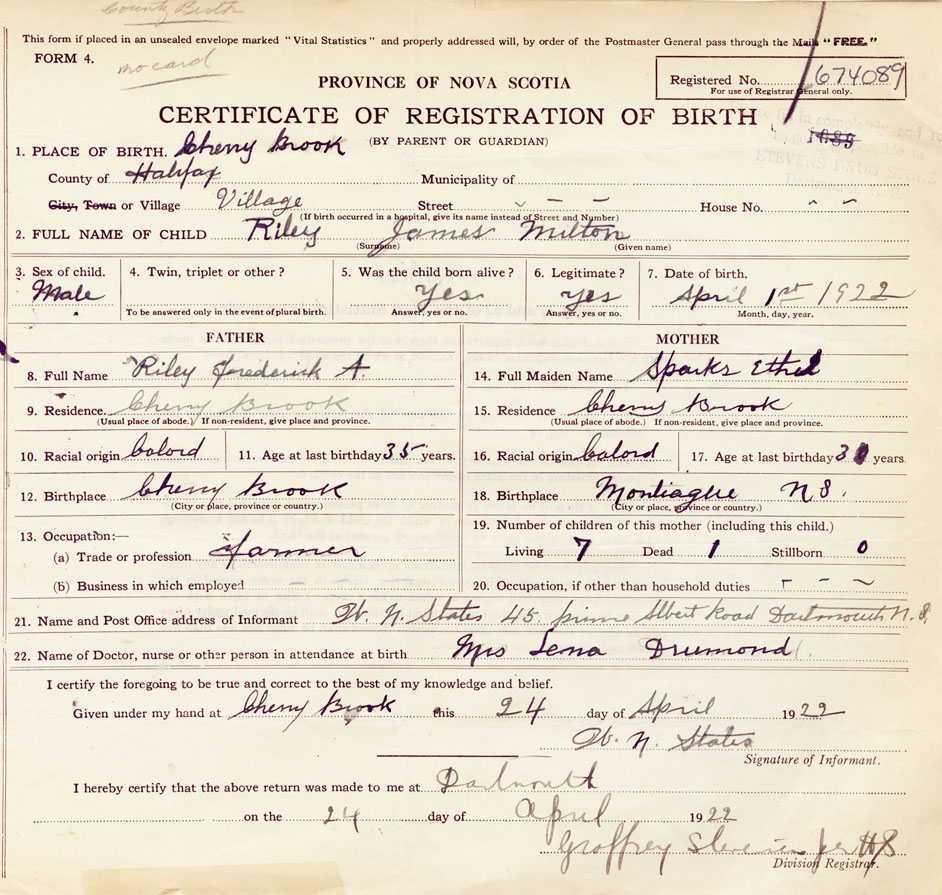 County Birth
This form if placed in an unsealed envelope marked "Vital Statistics" and properly addressed will, by order of the Postmaster General pass through the Mails "FREE."
FORM 4.
no card
PROVINCE OF NOVA SCOTIA
Registered No. 674089
For use of Registrar General only.
CERTIFICATE OF REGISTRATION OF BIRTH
(BY PARENT OR GUARDIAN)
1689
STEVENS DRUG STORE
1. PLACE OF BIRTH. Cherry Brook
County of Halifax Municipality of
City, Town or Village Village Street – – House No.
(If birth occurred in a hospital, give its name instead of Street and Number)
2. FULL NAME OF CHILD Riley James Milton
(Surname) (Given name)
3. Sex of child. 4. Twin, triplet or other? 5. Was the child born alive? 6. Legitimate? 7. Date of birth.
Male Yes yes April 1st 1922
To be answered only in the event of plural birth. Answer, yes or no. Answer, yes or no. Month, day, year.
FATHER MOTHER
8. Full Name Riley Frederick A. 14. Full Maiden Name Sparks Ethel
9. Residence. Cherry Brook 15. Residence Cherry Brook
(Usual place of abode.) If non-resident, give place and province. (Usual place of abode.) If non-resident, give place and province.
10. Racial origin Colord 11. Age at last birthday 35 years. 16. Racial origin Colord 17. Age at last birthday 30 years.
12. Birthplace Cherry Brook 18. Birthplace Montiague N S.
(City or place, province or country.) (City or place, province or country.)
13. Occupation:— 19. Number of children of this mother (including this child.)
(a) Trade or profession farmer Living 7 Dead 1 Stillborn 0
(b) Business in which employed – 20. Occupation, if other than household duties – –
21. Name and Post Office address of Informant W. N. States 45 prince Albert Road Dartmouth N.S.
22. Name of Doctor, nurse or other person in attendance at birth Mrs Lena Drumond
I certify the foregoing to be true and correct to the best of my knowledge and belief.
Given under my hand at Cherry Brook this 24 day of April 1922
W. N. States
Signature of Informant.
I hereby certify that the above return was made to me at Dartmouth
on the 24 day of April 1922
Geoffrey Stevens
Division Registrar.